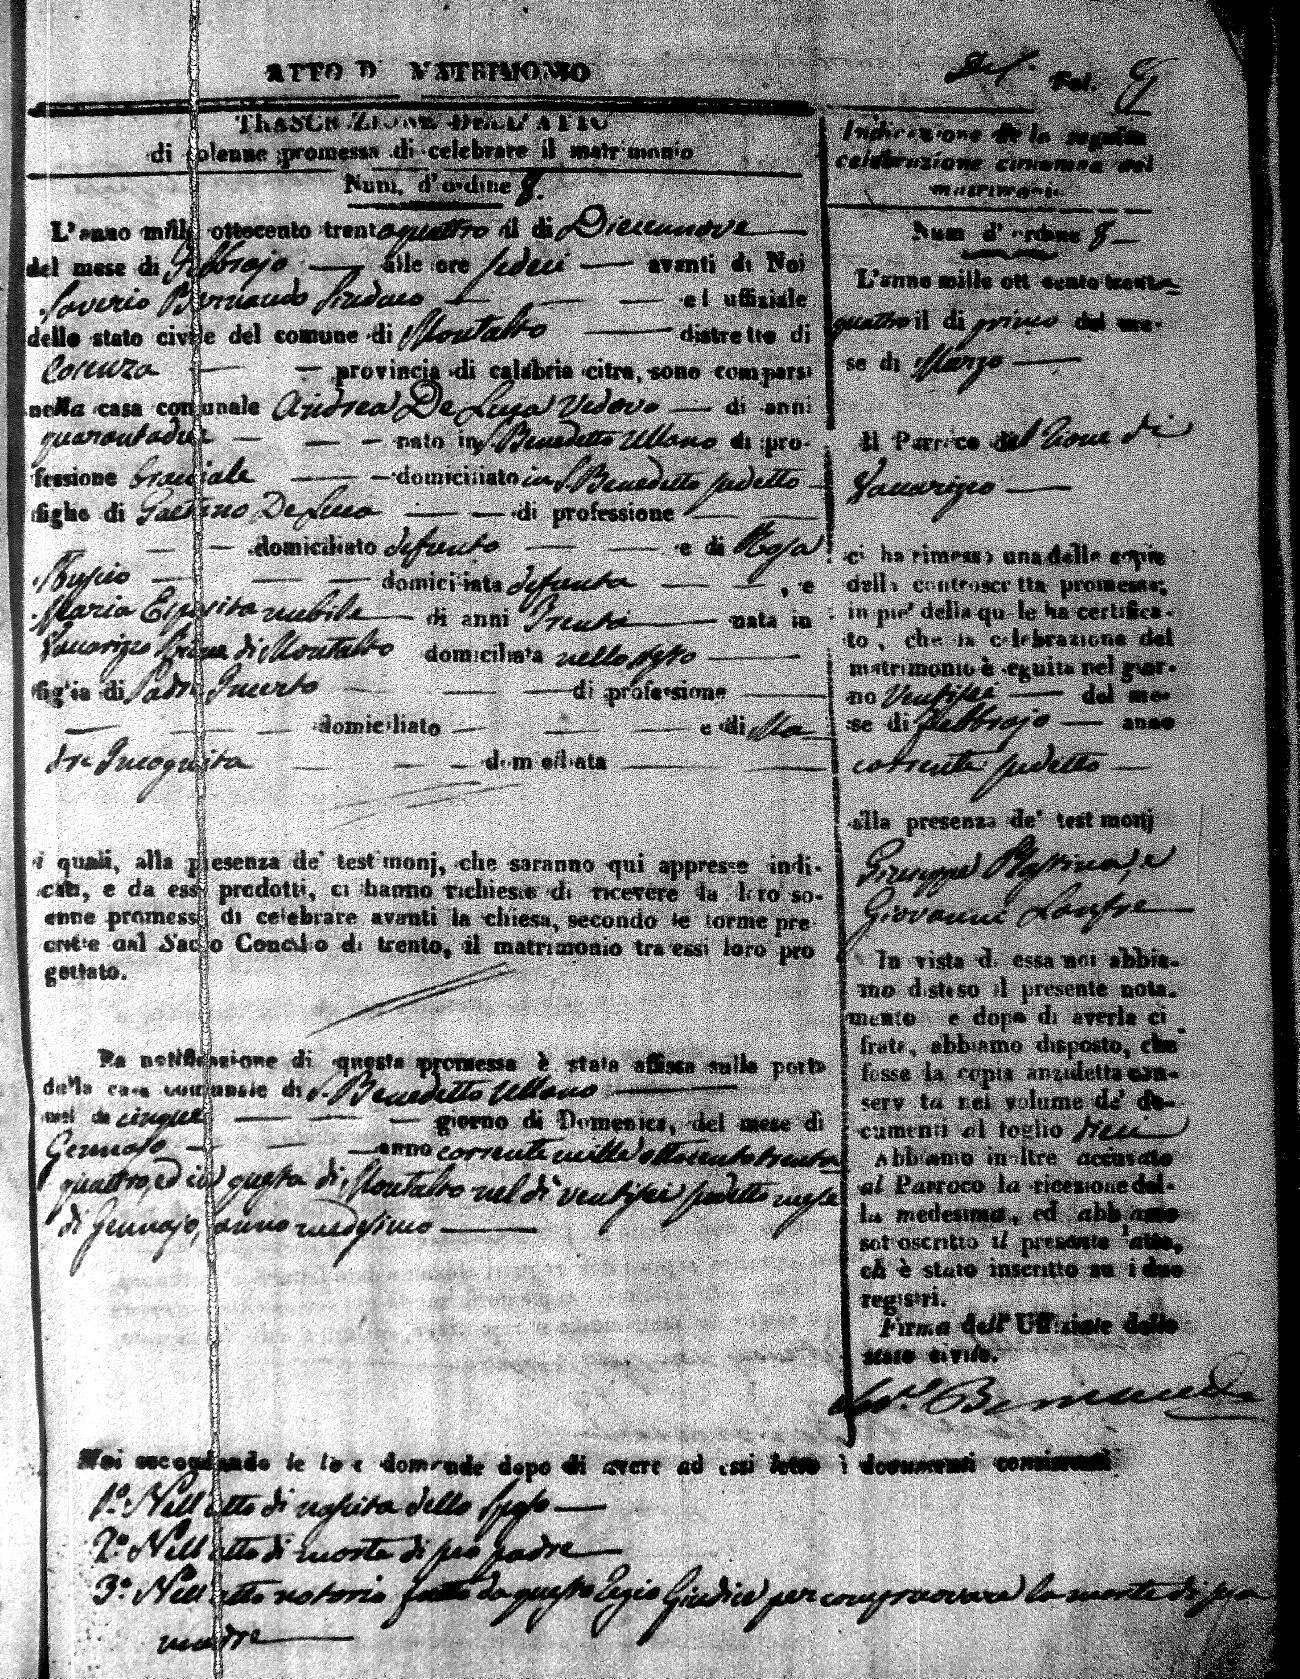 ATTO D' MATRIMONIO
Fol.
TRASCRIZIONE DELL'ATTO
di solenne promessa di celebrare il matrimonio
Num. d'ordine 8.
L'anno mille ottocento trentaquattro il di Diecinove
del mese di Febbrajo alle ore sedeci avanti di Noi
Saverio Bernaudo Sindaco ed uffiziale
dello stato civile del comune di Montalto distretto di
Cosenza provincia di calabria citra, sono comparsi
nella casa comunale Andrea De Luca Vedovo di anni
quarantadue nato in S. Benedetto Ullano di pro-
fessione bracciale domiciliato in S. Benedetto sudetto
figlio di Gaetano De Luca di professione
domiciliato defunto e di Rosa
domiciliata defunta, e
Maria Esposita nubile di anni Trenta nata in
Vaccarizzo Rione di Montalto domiciliata nello stesso
figlia di Padre Incerto di professione
domiciliato e di Ma
dre Incognita domiciliata
i quali, alla presenza de' testimonj, che saranno qui appresse indi-
cati, e da essi prodotti, ci hanno richiesto di ricevere la loro so-
enne promessa di celebrare avanti la chiesa, secondo le forme pre
critte dal Sacro Concilio di trento, il matrimonio tra essi loro pro
gettato.
La notificazione di questa promessa è stata affissa sulla porta
della casa comunale di S. Benedetto Ullano
nel di cinque giorno di Domenica, del mese di
Gennajo anno corrente mille ottocento trenta
quattro, ed in questa di Montalto nel di ventisei sudetto mese
di Gennajo, anno medesimo
Noi secondando le loro domande dopo di avere ad essi letto i documenti consistenti
1.° Nell'atto di nascita dello sposo
2.° Nell'atto di morte di suo padre
3.° Nell'atto notorio fatto da questo Regio Giudice per comprovare la morte di sua
madre
Indicazione de la seguita
celebrazione canonica del
matrimonio.
Num d'ordine 8
L'anno mille ottocento trenta
quattro il di primo del me-
se di Marzo
Il Parroco del Rione di
Vaccarizzo
ci ha rimesso una delle copie
della controscritta promessa;
in pie' della quale ha certifica-
to, che la celebrazione del
matrimonio è seguita nel gior-
no Ventisei del me-
se di Febbrajo anno
corrente sudetto
alla presenza de' testimonj
Giuseppe Plastina, e
Giovanni
In vista di essa noi abbia-
mo disteso il presente nota-
mento e dopo di averla ci
frata, abbiamo disposto, che
fosse la copia anzidetta con-
servata nel volume de' do-
cumenti al foglio dieci
Abbiamo inoltre accusato
al Parroco la ricezione del-
la medesima, ed abbiamo
sottoscritto il presente atto,
ch è stato inscritto su i due
registri.
Firma dell'Uffiziale dello
stato civile.
Sav.° Bernaudo